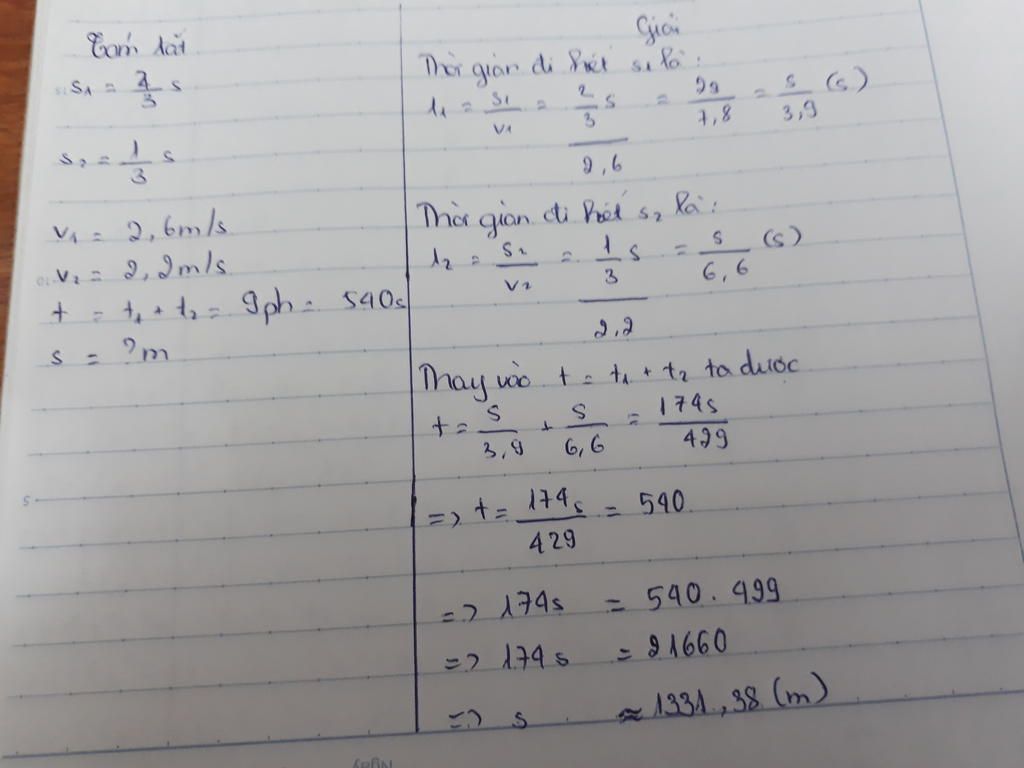 Tóm tắt
s1 = 2/3 s
s2 = 1/3 s
v1 = 2,6m/s
v2 = 2,2m/s
t = t1 + t2 = 9ph = 540s
s = ?m
Giải
Thời gian đi hết s1 là:
t1 = s1/v1 = 2/3 s / 2,6 = 2s/7,8 = s/3,9 (s)
Thời gian đi hết s2 là:
t2 = s2/v2 = 1/3 s / 2,2 = s/6,6 (s)
Thay vào t = t1 + t2 ta được
t = s/3,9 + s/6,6 = 174s/429
=> t = 174s/429 = 540
=> 174s = 540 . 429
=> 174s = 21660
=> s ≈ 1331,38 (m)
Ngày